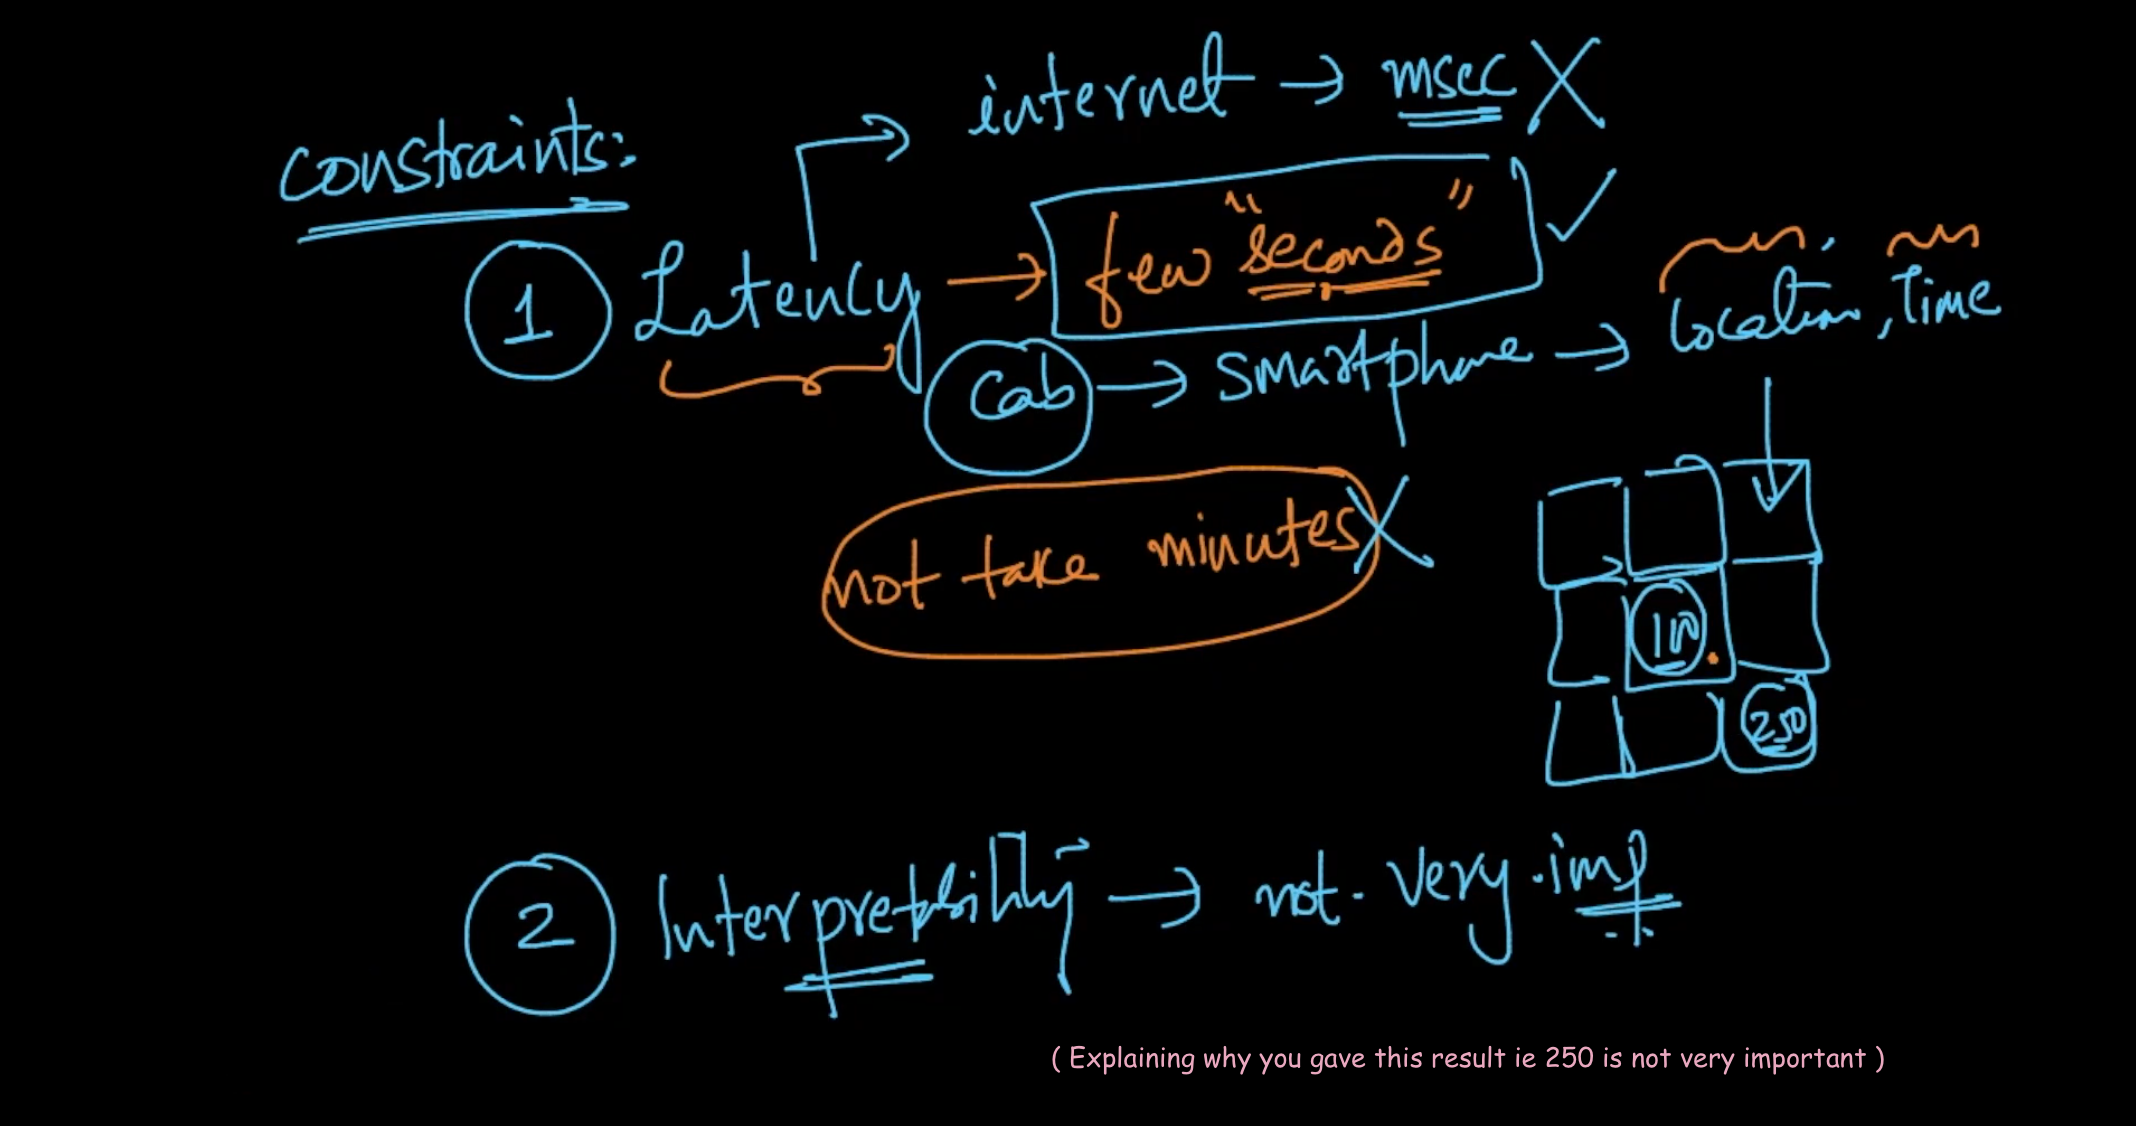 constraints:
internet → msec X
1 Latency → few "seconds" ✓
Cab → smartphone → location, Time
not take minutes X
10
250
2 Interpretability → not very imp
( Explaining why you gave this result ie 250 is not very important )